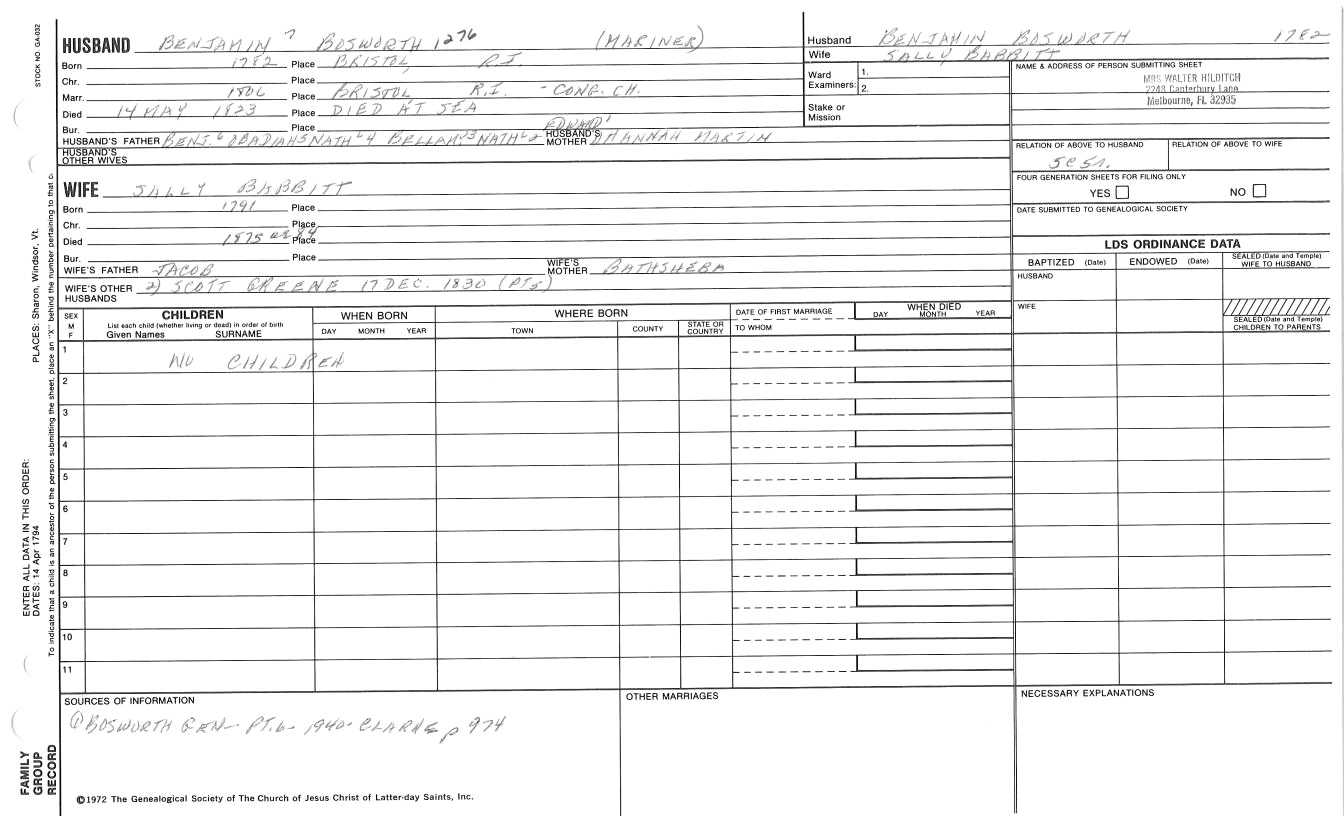 STOCK NO GA-032
HUSBAND BENJAMIN 7 BOSWORTH 1276 (MARINER)
Born 1782 Place BRISTOL, R.I.
Chr. Place
Marr. 1806 Place BRISTOL R.I. - CONG. CH.
Died 14 MAY 1823 Place DIED AT SEA
Bur. Place
HUSBAND'S FATHER BENJ. 6 OBADIAH 5 NATH'L 4 BELLAMY 3 NATH'L 2 EDWARD 1 HUSBAND'S MOTHER HANNAH MARTIN
HUSBAND'S OTHER WIVES
Husband BENJAMIN BOSWORTH 1782
Wife SALLY BABBITT
Ward Examiners: 1.
2.
Stake or Mission
NAME & ADDRESS OF PERSON SUBMITTING SHEET
MRS WALTER HILDITCH
2248 Canterbury Lane
Melbourne, FL 32935
RELATION OF ABOVE TO HUSBAND RELATION OF ABOVE TO WIFE
5C5r.
FOUR GENERATION SHEETS FOR FILING ONLY
YES NO
DATE SUBMITTED TO GENEALOGICAL SOCIETY
WIFE SALLY BABBITT
Born 1791 Place
Chr. Place
Died 1875 84 Place
Bur. Place
WIFE'S FATHER JACOB WIFE'S MOTHER BATHSHEBA
WIFE'S OTHER HUSBANDS 2) SCOTT GREENE 17 DEC. 1830 (PTS)
LDS ORDINANCE DATA
BAPTIZED (Date) ENDOWED (Date) SEALED (Date and Temple) WIFE TO HUSBAND
HUSBAND
WIFE
SEALED (Date and Temple) CHILDREN TO PARENTS
SEX M F
CHILDREN
List each child (whether living or dead) in order of birth
Given Names SURNAME
WHEN BORN
DAY MONTH YEAR
WHERE BORN
TOWN COUNTY STATE OR COUNTRY
DATE OF FIRST MARRIAGE
TO WHOM
WHEN DIED
DAY MONTH YEAR
1 NO CHILDREN
2
3
4
5
6
7
8
9
10
11
SOURCES OF INFORMATION
① BOSWORTH GEN- PT.6- 1940- CLARKE p 974
OTHER MARRIAGES
NECESSARY EXPLANATIONS
©1972 The Genealogical Society of The Church of Jesus Christ of Latter-day Saints, Inc.
FAMILY GROUP RECORD
ENTER ALL DATA IN THIS ORDER:
DATES: 14 Apr 1794
PLACES: Sharon, Windsor, Vt.
To indicate that a child is an ancestor of the person submitting the sheet, place an "X" behind the number pertaining to that c